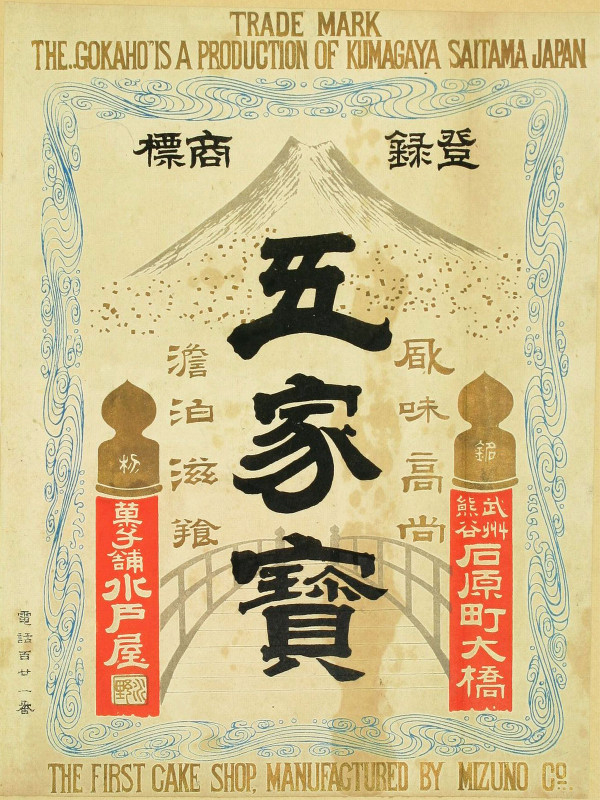 TRADE MARK
THE „GOKAHO” IS A PRODUCTION OF KUMAGAYA SAITAMA JAPAN
登録
商標
五家寶
風味高尚
澹泊滋養
銘
武州
熊谷
石原町大橋
菓子舗
水戸屋
水野
電話百廿一番
THE FIRST CAKE SHOP, MANUFACTURED BY MIZUNO Co.